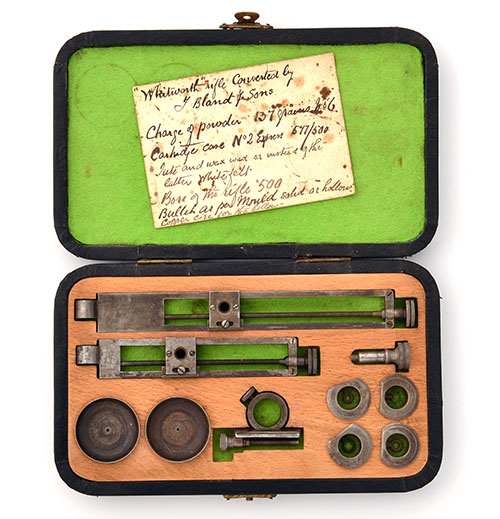 "Whitworth" rifle Converted by
T Bland & Sons.
Charge of powder 137 grains No 6
Cartridge case No 2 Express 577/500
Jute and wax wad or instead of the
latter White felt.
Bore of the rifle '500
Bullets as per Mould solid or hollow
Copper core for the hollow